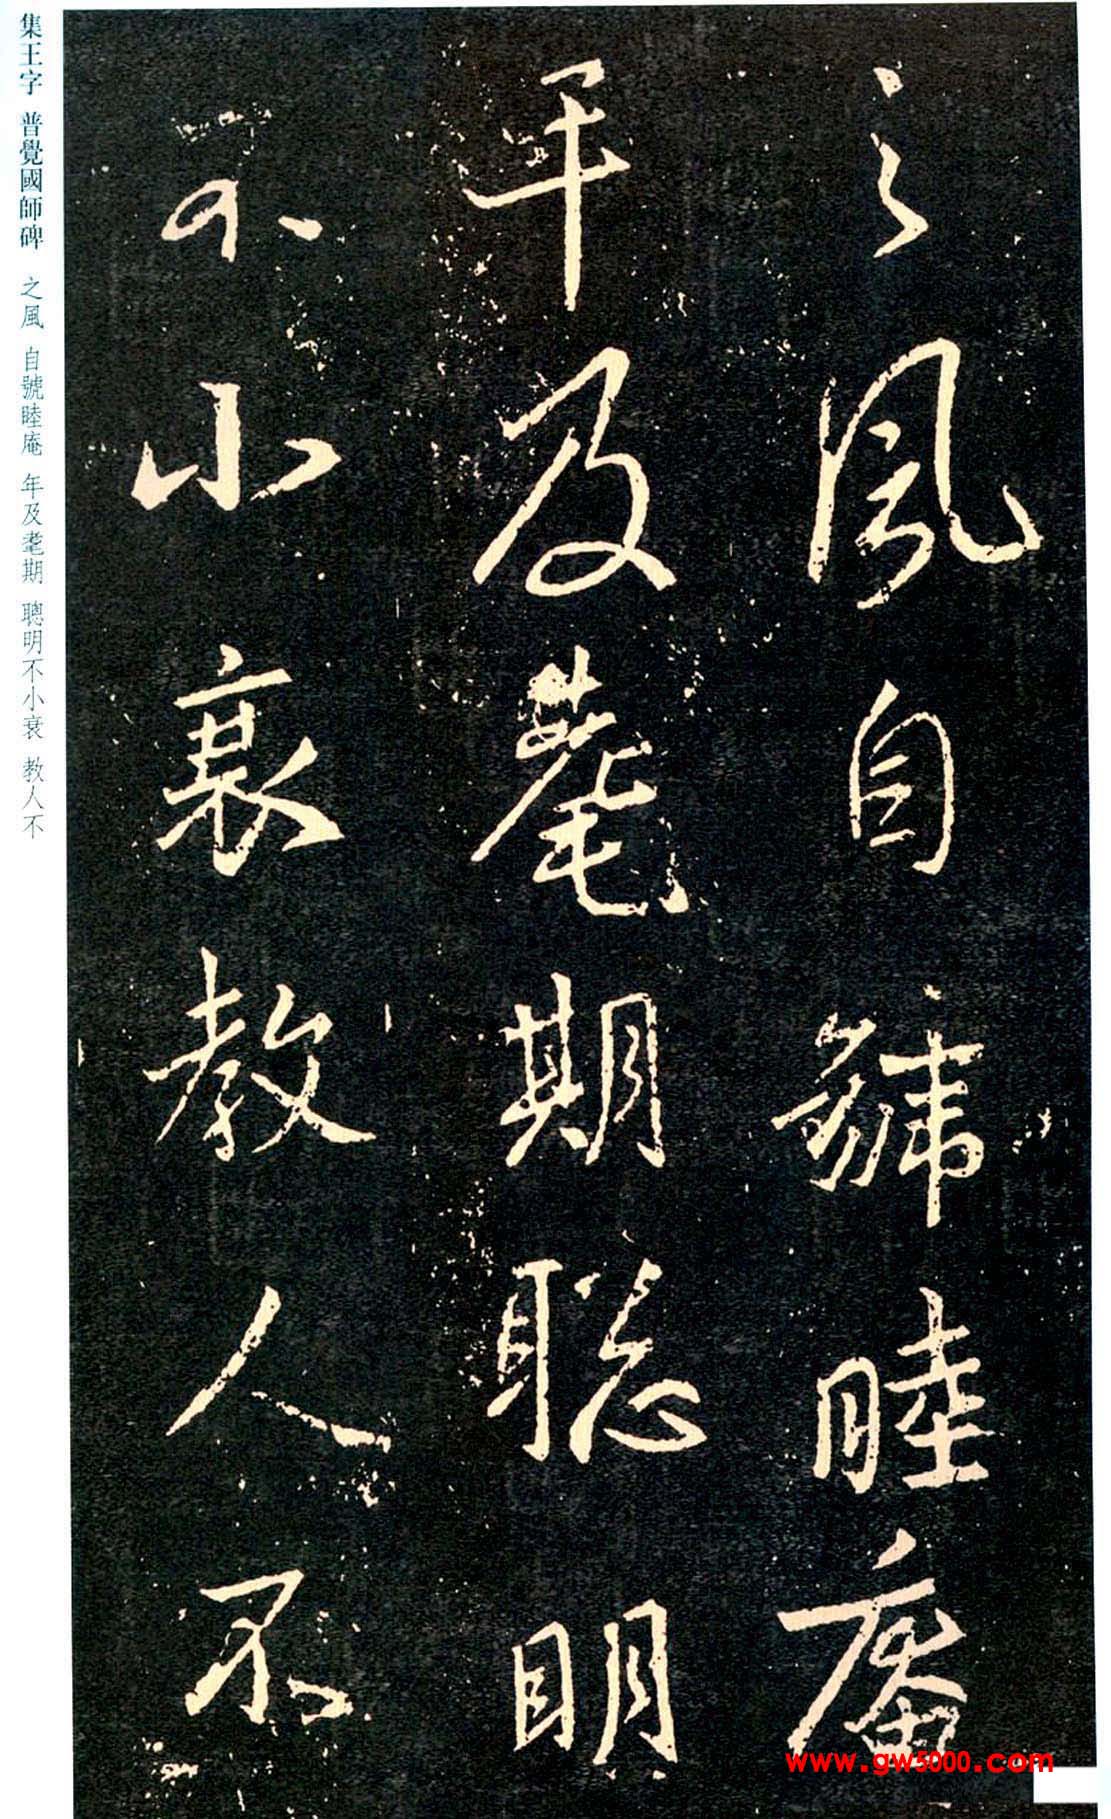 之風自號睦庵
年及耄期聰明
不小衰教人不
集王字 普覺國師碑 之風 自號睦庵 年及耄期 聰明不小衰 教人不
www.gw5000.com